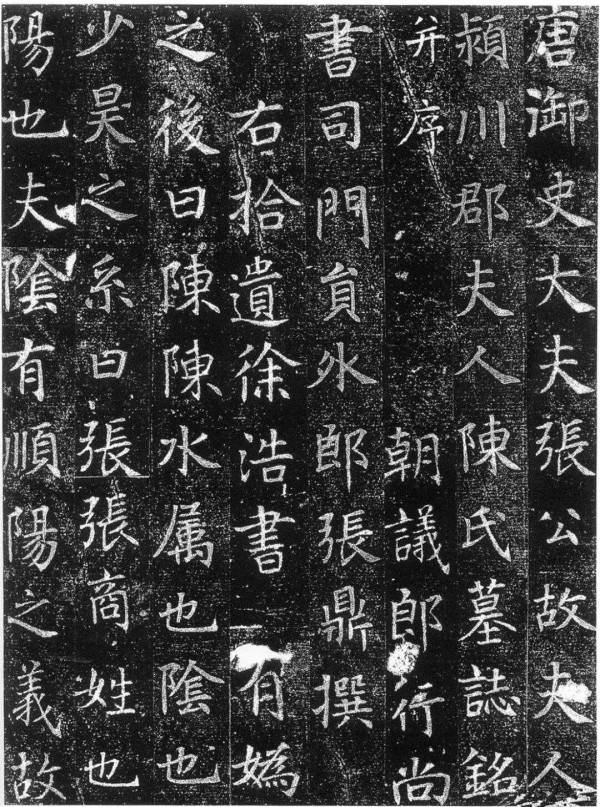 唐御史大夫張公故夫人
潁川郡夫人陳氏墓誌銘
并序 朝議郎行尚
書司門貟外郎張鼎撰
右拾遺徐浩書 有媯
之後曰陳陳水属也陰也
少昊之系曰張張商姓也
陽也夫陰有順陽之義故